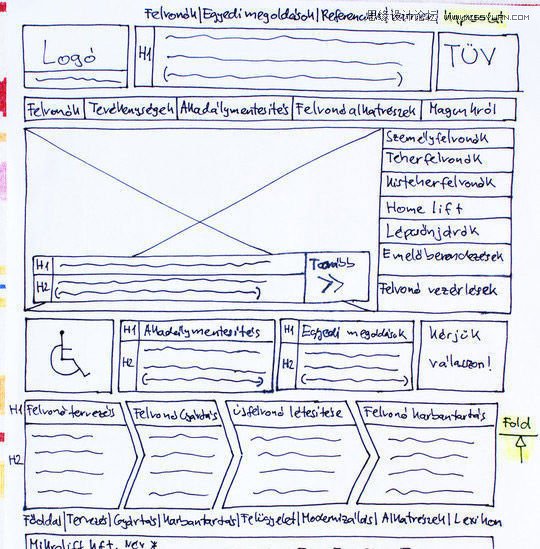 Felvonók|Egyedi megoldások|Referenciá
思缘设计论坛 WWW.MISSYUAN.COM
Logó
H1
TÜV
Felvonók | Tevékenységek | Akadálymentesítés | Felvonóalkatrészek | Magunkról
Személyfelvonók
Teherfelvonók
Kisteherfelvonók
Home lift
Lépcsőnjárók
Emelőberendezések
Felvonó vezérlések
H1
Tovább
H2
H1 Akadálymentesítés
H2
H1 Egyedi megoldások
H2
Kérjük
válasszon!
H1 Felvonótervezés
Felvonó Gyártás
Újfelvonó létesítése
Felvonó karbantartás
Fold
H2
Főoldal|Tervezés|Gyártás|Karbantartás|Felügyelet|Modernizálás|Alkatrészek|Lexikon
Mikrolift kft.